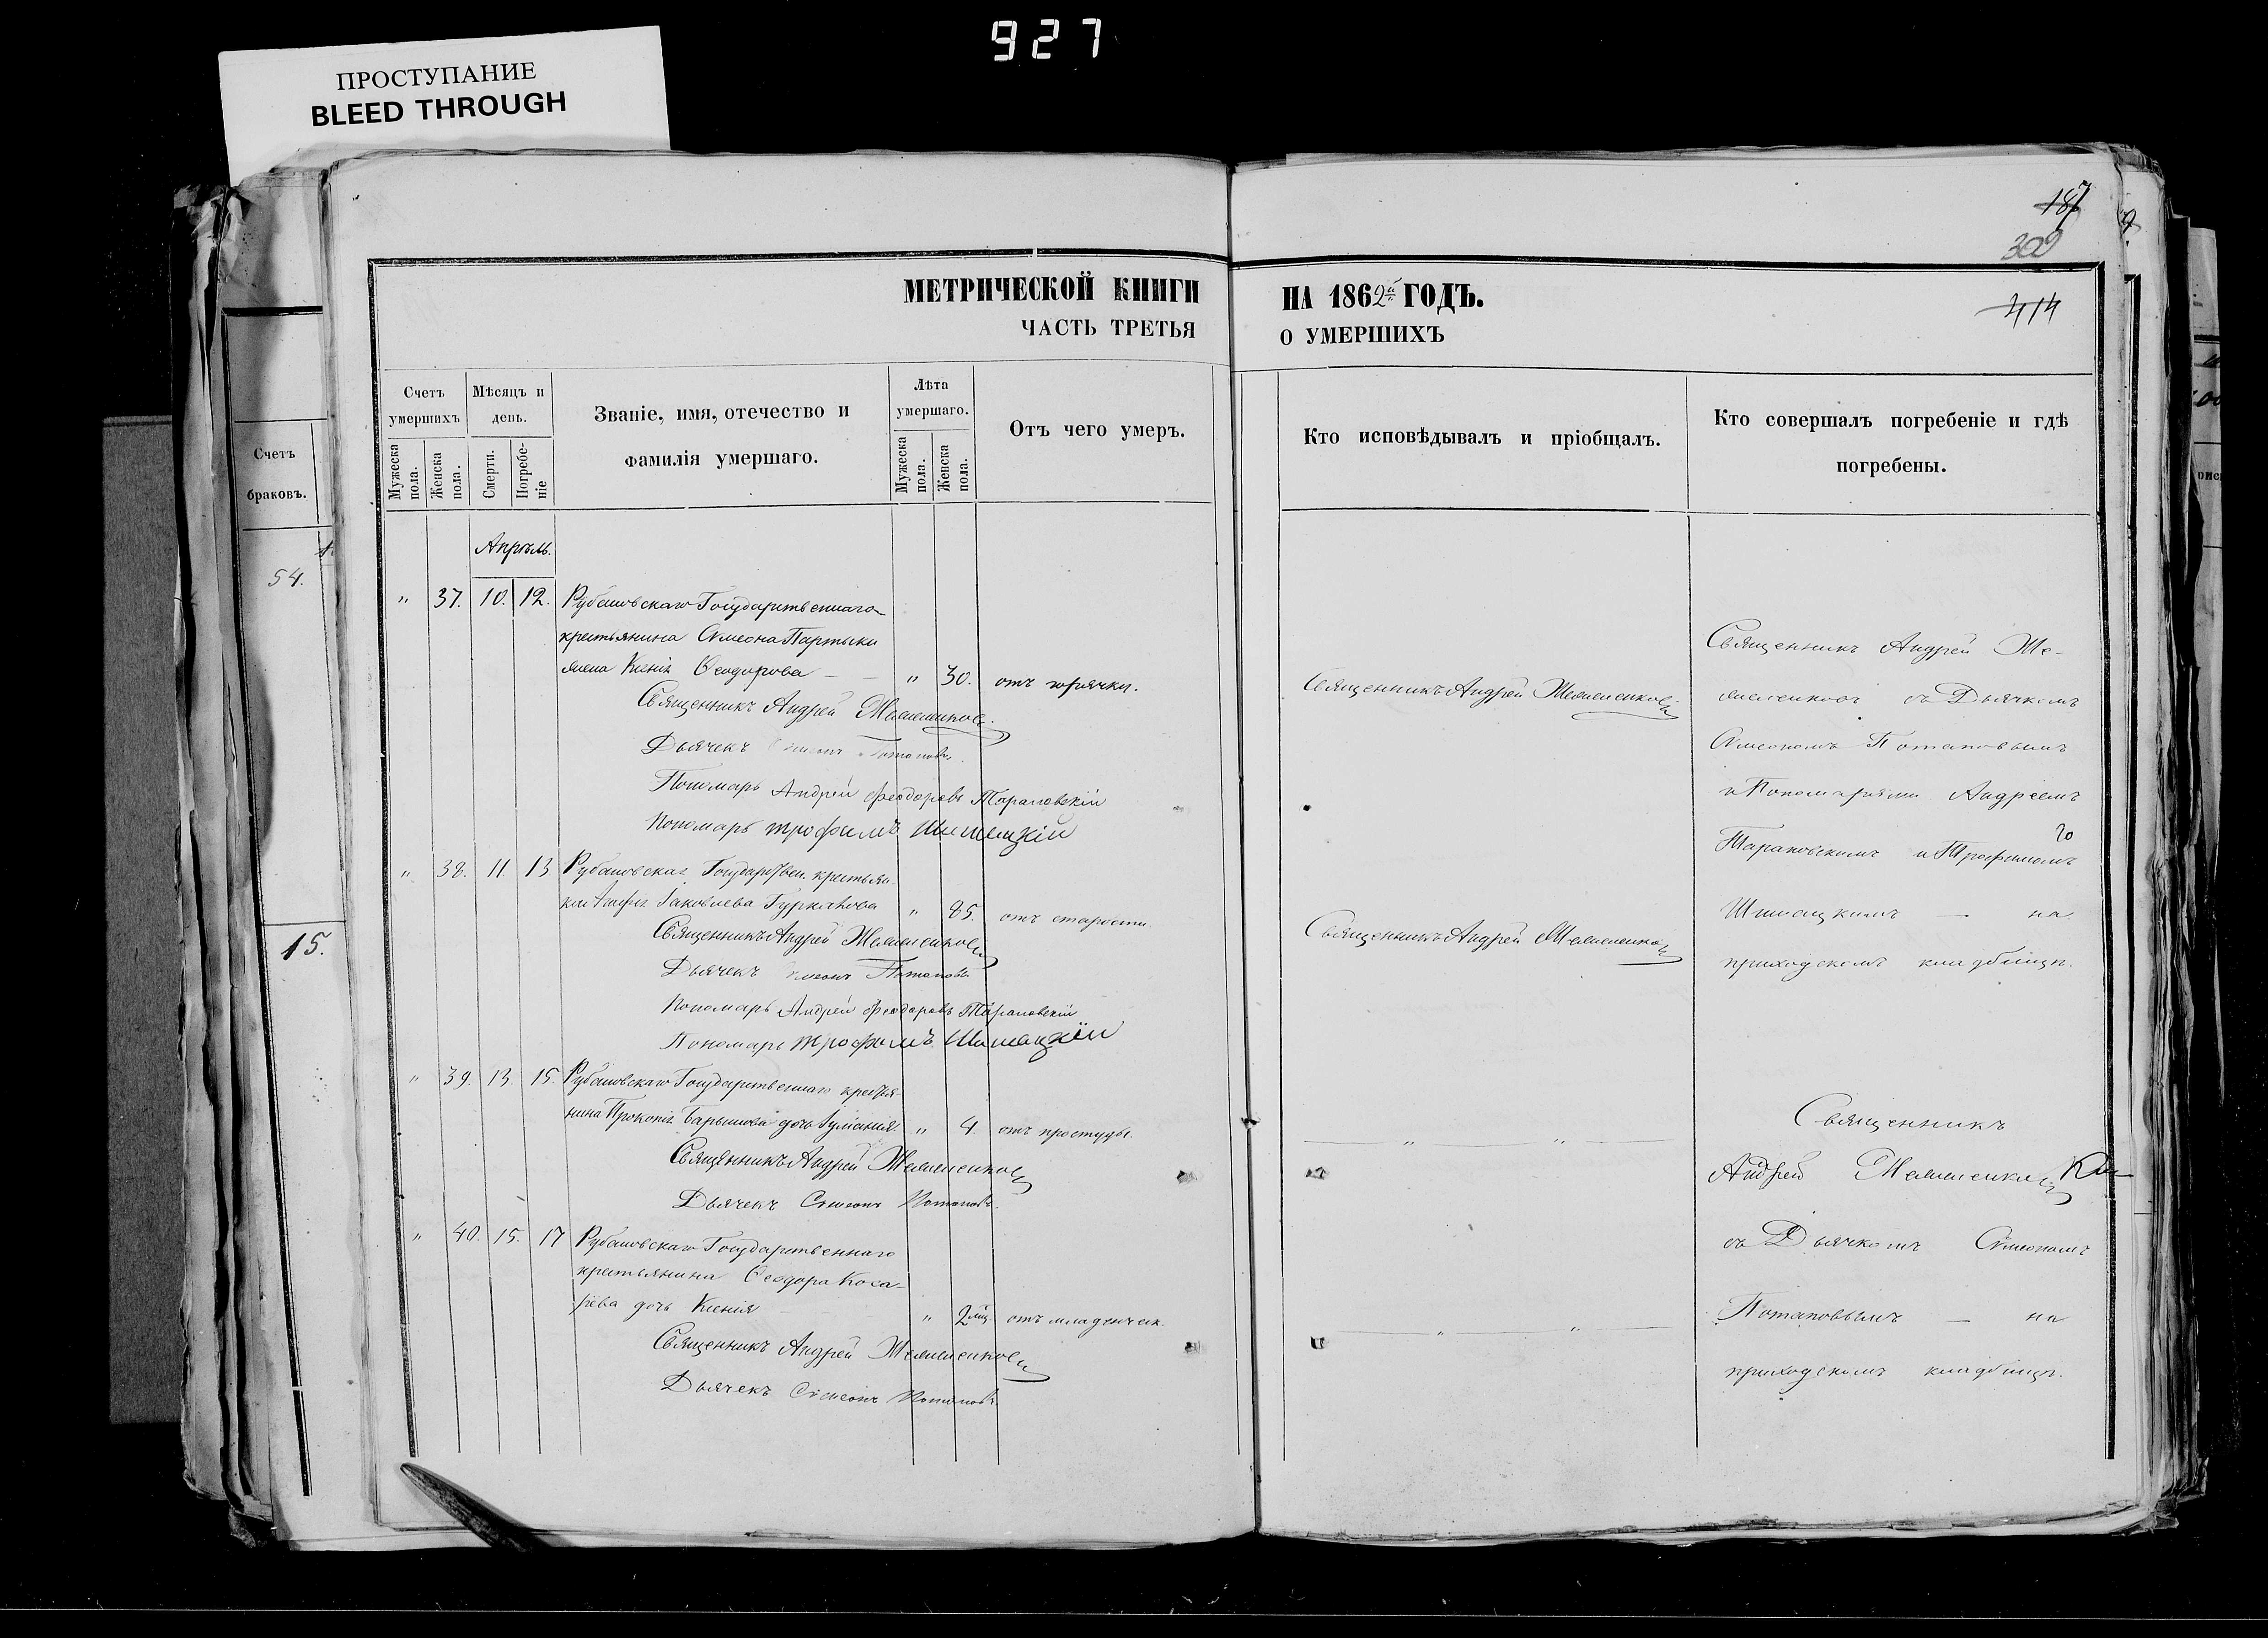 927
ПРОСТУПАНИЕ
BLEED THROUGH
187
302
414
МЕТРИЧЕСКОЙ КНИГИ НА 1862й ГОДЪ.
ЧАСТЬ ТРЕТЬЯ О УМЕРШИХЪ
Счетъ умершихъ
Мужеска пола.
Женска пола.
Мѣсяцъ и день.
Смерти.
Погребеніе
Званіе, имя, отечество и
фамилія умершаго.
Лѣта умершаго.
Мужеска пола.
Женска пола.
Отъ чего умеръ.
Кто исповѣдывалъ и пріобщалъ.
Кто совершалъ погребеніе и гдѣ
погребены.
Счетъ
браковъ.
54.
15.
Апрѣль.
" 37. 10. 12. Рубановскаго Государственнаго
крестьянина Симеона Партыки
жена Ксенія Ѳеодорова — " 30. отъ горячки.
Священникъ Андрей
Дьячекъ Симеонъ Потаповъ
Пономарь Андрей Феодоровъ Тарановскій
Пономарь Трофимъ Шишацкій
Священникъ Андрей
" 38. 11. 13 Рубановская Государствен. крестьян-
ка Іаковлева " 85. отъ старости.
Священникъ Андрей
Дьячекъ Симеонъ Потаповъ
Пономарь Андрей Феодоровъ Тарановскій
Пономарь Трофимъ Шишацкій
Священникъ Андрей
Священникъ Андрей
съ Дьячкомъ
Симеономъ Потаповымъ
и Пономарями Андреемъ
Тарановскимъ и Трофимомъ
Шишацкимъ — на
приходскомъ кладбищѣ.
" 39. 13. 15. Рубановскаго Государственнаго крестья-
нина Прокопія дочь Іуліанія " 4. отъ простуды.
Священникъ Андрей
Дьячекъ Симеонъ Потаповъ.
" 40. 15. 17 Рубановскаго Государственнаго
крестьянина Ѳеодора Коса-
рева дочь Ксенія " 2 мц. отъ младенческ.
Священникъ Андрей
Дьячекъ Симеонъ Потаповъ
Священникъ
Андрей
съ Дьячкомъ Симеономъ
Потаповымъ — на
приходскомъ кладбищѣ.